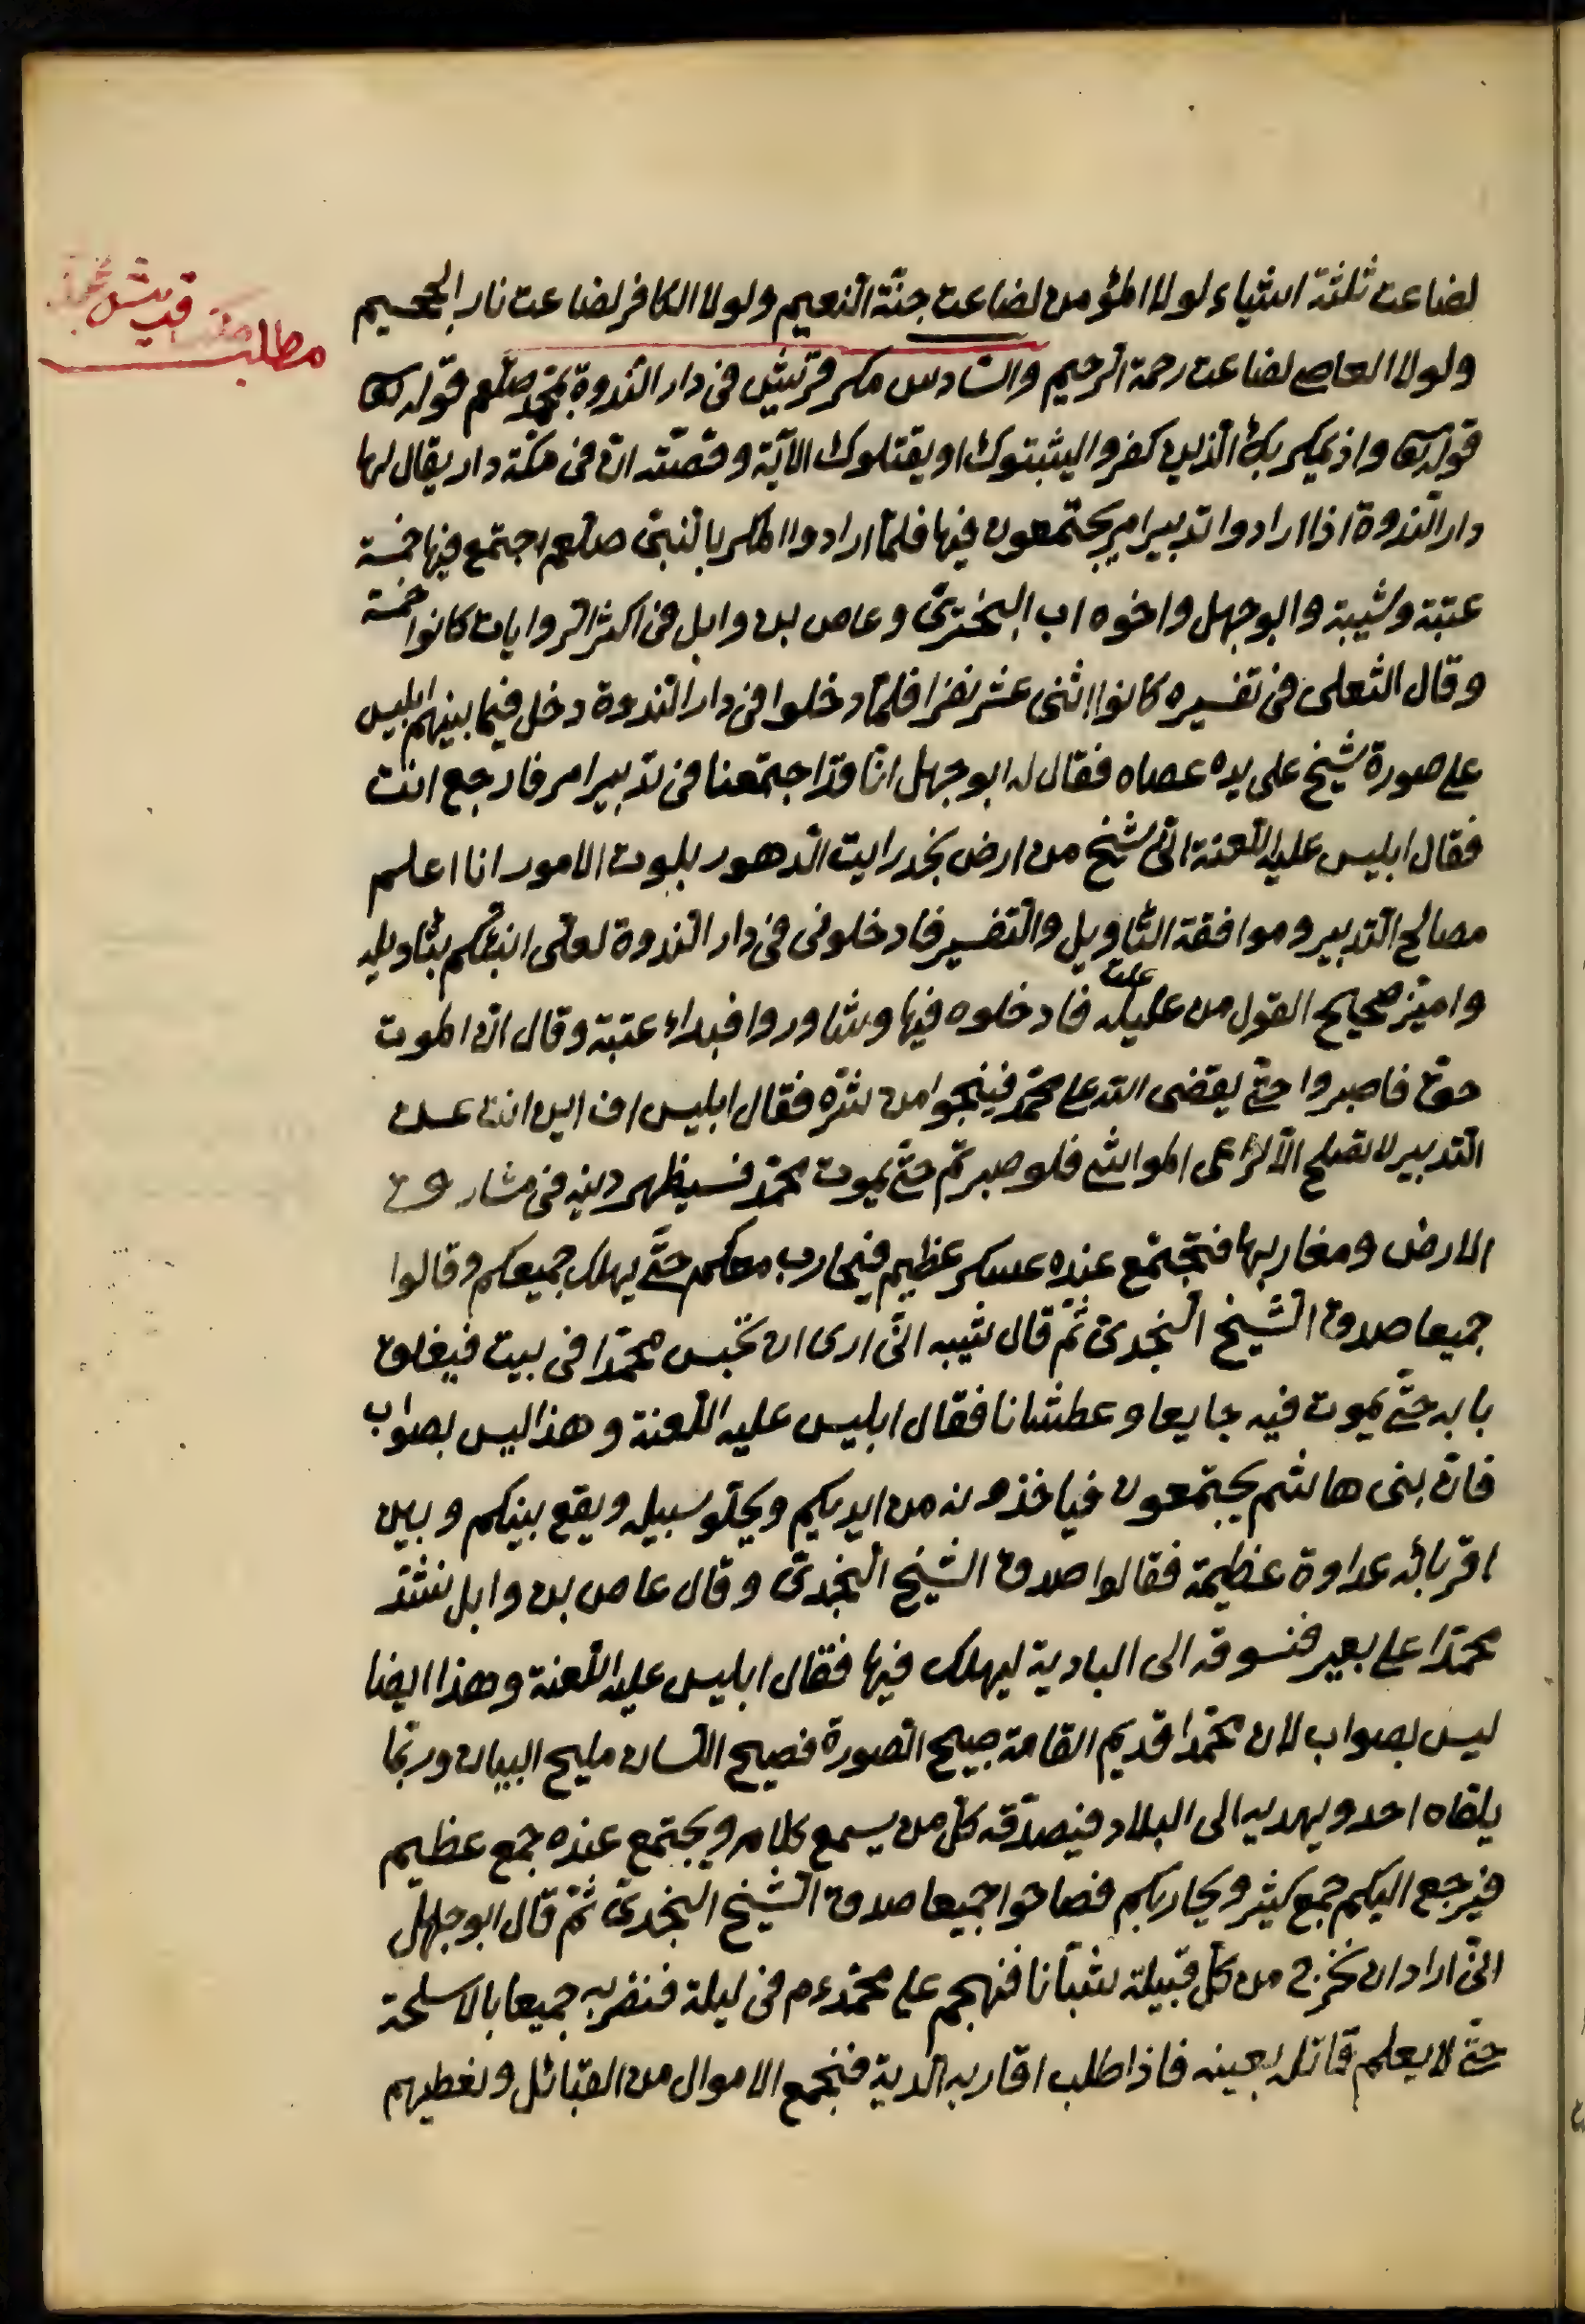 مطلب
قريش
لضاعت ثلثة اشياء لولا المؤمن لضاعت جنّة النعيم ولولا الكافر لضاعت نار الجحيم
ولولا العاصى لضاعت رحمة الرحيم والسّادس مكر قريش فى دار النّدوة بمحمّد صلعم قوله تعالى
قوله تعالى واذ يمكر بك الّذين كفروا ليثبتوك او يقتلوك الآية وقصّته انّ فى مكّة دار يقال لها
دار النّدوة اذا ارادوا تدبير امر يجتمعون فيها فلمّا ارادوا المكر بالنّبىّ صلعم اجتمع فيها خمسة
عتبة وشيبة وابو جهل واخوه اب البخترىّ وعاص بن وايل فى اكثر الرّوايات كانوا خمسة
وقال الثعلبى فى تفسيره كانوا اثنى عشر نفرا فلمّا دخلوا فى دار النّدوة دخل فيما بينهم ابليس
على صورة شيخ على يده عصاه فقال له ابو جهل انّا قد اجتمعنا فى تدبير امر فارجع انت
فقال ابليس عليه اللّعنة انّى شيخ من ارض نجد رايت الدّهور بلوت الامور انا اعلم
مصالح التّدبير وموافقة التّاويل والتّفسير فادخلونى فى دار النّدوة لعلّى انبئكم بتاويله
واميّز صحيح القول من عليله فادخلوه فيها وشاوروا فبداء عتبة وقال انّ الموت
حقّ فاصبروا حتّى يقضى اللّه على محمّد فينجوا من شرّه فقال ابليس اف اين انت عن
التّدبير لا تصلح الّا لراعى المواشى فلو صبرتم حتّى يموت محمّد فسيظهر دينه فى مشارق
الارض ومغاربها فتجتمع عنده عسكر عظيم فيحارب معكم حتّى يهلك جميعكم وقالوا
جميعا صدق الشّيخ النّجدىّ ثمّ قال شيبه انّى ارى ان نحبس محمّدا فى بيت فيغلق
بابه حتّى يموت فيه جايعا وعطشانا فقال ابليس عليه اللّعنة وهذا ليس بصواب
فانّ بنى هاشم يجتمعون فياخذونه من ايديكم ويخلّو سبيله ويقع بينكم وبين
اقربائه عداوة عظيمة فقالوا صدق الشيخ النّجدىّ وقال عاص بن وايل نشدّ
محمّدا على بعير فنسوقه الى البادية ليهلك فيها فقال ابليس عليه اللّعنة وهذا ايضا
ليس بصواب لان محمّدا قديم القامة صبيح الصّورة فصيح اللّسان مليح البيان وربّما
يلقاه احد ويهديه الى البلاد فيصدّقه كلّ من يسمع كلامه ويجتمع عنده جمع عظيم
فيرجع اليكم جمع كثير ويحاربكم فصاحوا جميعا صدق الشّيخ النّجدىّ ثمّ قال ابو جهل
انّى اراد ان نخرج من كلّ قبيلة شبّانا فنهجم على محمّد عم فى ليلة فنضربه جميعا بالاسلحة
حتّى لا يعلم قاتله بعينه فاذا طلب اقاربه الّدية فنجمع الاموال من القبائل ونعطيهم